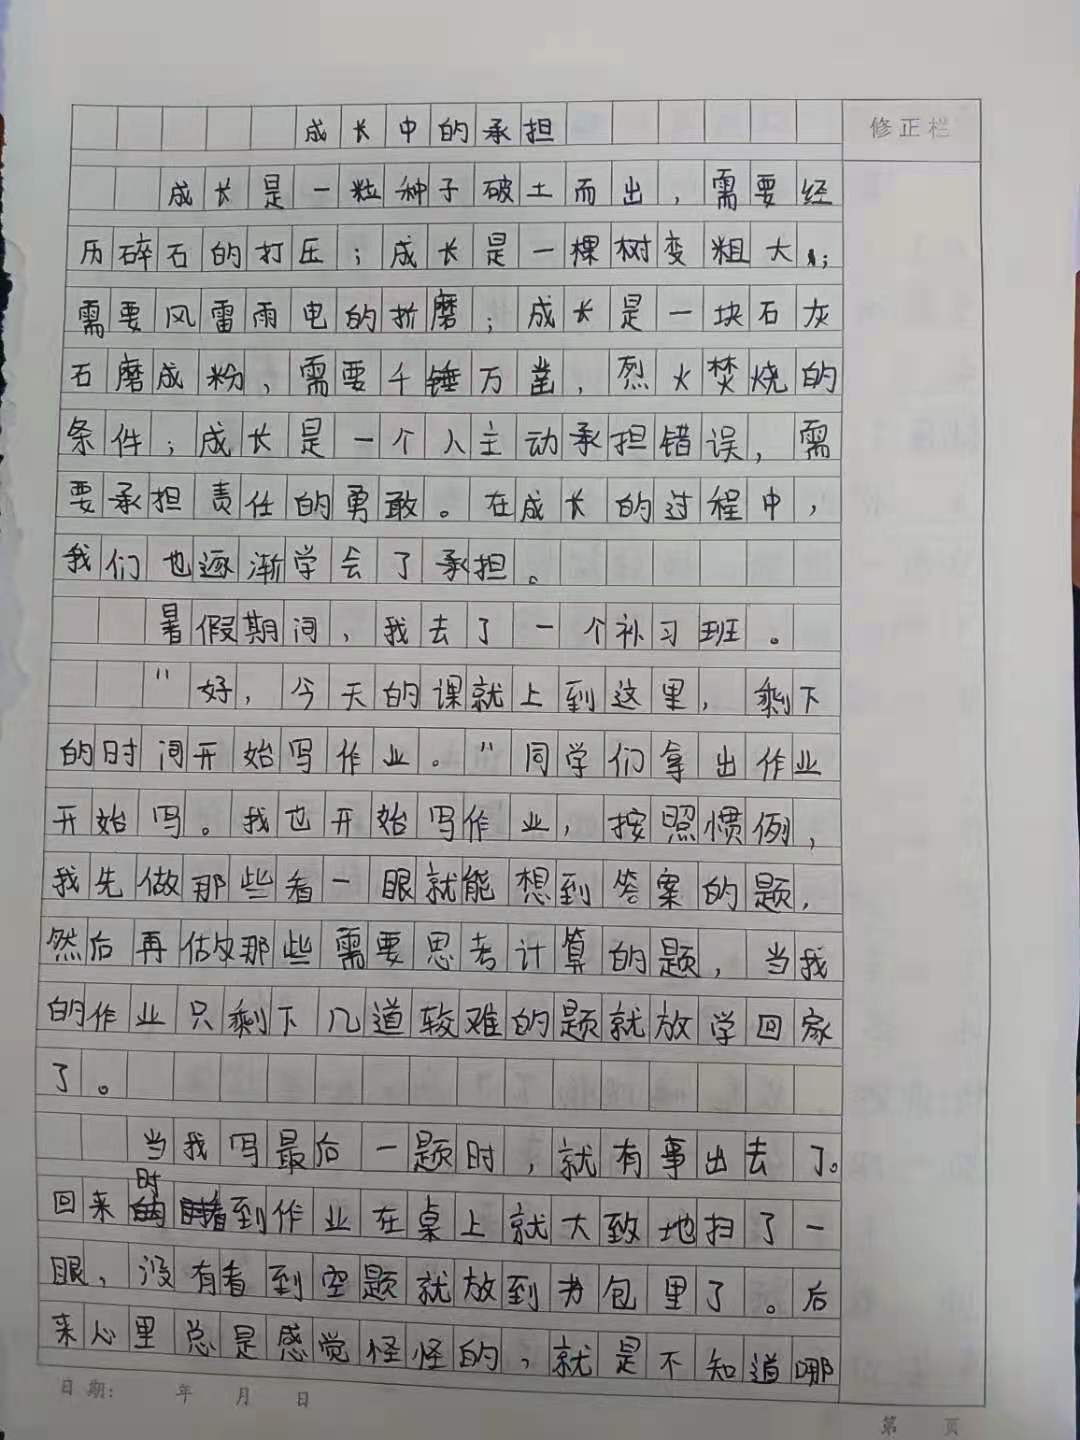 成长中的承担
修正栏
成长是一粒种子破土而出，需要经
历碎石的打压；成长是一棵树变粗大，
需要风雷雨电的折磨；成长是一块石灰
石磨成粉，需要千锤万凿，烈火焚烧的
条件；成长是一个人主动承担错误，需
要承担责任的勇敢。在成长的过程中，
我们也逐渐学会了承担。
暑假期间，我去了一个补习班。
“好，今天的课就上到这里，剩下
的时间开始写作业。”同学们拿出作业
开始写。我也开始写作业，按照惯例，
我先做那些看一眼就能想到答案的题，
然后再做那些需要思考计算的题，当我
的作业只剩下几道较难的题就放学回家
了。
当我写最后一题时，就有事出去了。
回来时看到作业在桌上就大致地扫了一
眼，没有看到空题就放到书包里了。后
来心里总是感觉怪怪的，就是不知道哪
日期： 年 月 日
第 页